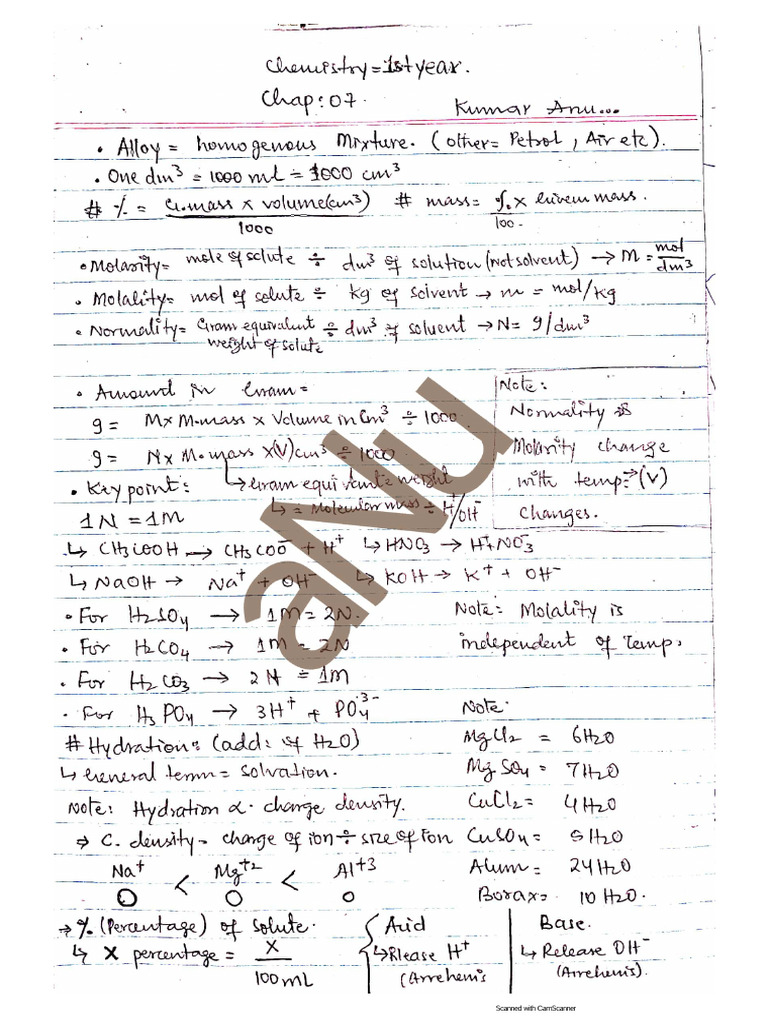 Chemistry = 1st year.
Chap: 07. Kumar Anu...
• Alloy = homogenous Mixture. (other = Petrol, Air etc).
• One dm³ = 1000 mL = 1000 cm³
# % = G.mass x volume(cm³) / 1000 # mass = % x Given mass. / 100.
• Molarity = mole of solute ÷ dm³ of solution (not solvent) → M = mol/dm³
• Molality = mol of solute ÷ kg of solvent → m = mol/kg
• Normality = Gram equivalent weight of solute ÷ dm³ of solvent → N = g/dm³
• Amound in Gram =
g = M x M.mass x Volume in Cm³ ÷ 1000.
g = N x M.mass x (V) cm³ ÷ 1000
↳ Gram equivivente weight
↳ = Molecular mass ÷ H⁺/OH⁻
Note:
Normality is
Molarity change
with temp: → (V)
changes.
• Key point:
1N = 1M
↳ CH3COOH → CH3COO⁻ + H⁺ ↳ HNO3 → H⁺ + NO3⁻
↳ NaOH → Na⁺ + OH⁻ ↳ KOH → K⁺ + OH⁻
• For H2SO4 → 1M = 2N.
• For H2CO4 → 1M = 2N
• For H2CO3 → 2N = 1M
• For H3PO4 → 3H⁺ + PO4³⁻
Note: Molality is
independent of Temp.
# Hydration: (add: of H2O)
↳ General term = solvation.
Note: Hydration α. charge density.
⇒ C. density = charge of ion ÷ size of ion
Na⁺ < Mg⁺² < Al⁺³
Note:
MgCl2 = 6H2O
MgSO4 = 7H2O
CuCl2 = 4H2O
CuSO4 = 5H2O
Alum = 24H2O
Borax = 10H2O.
→ % (Percentage) of solute.
↳ X percentage = X / 100mL
Acid
↳ Rlease H⁺
(Arrehenis
Base.
↳ Release OH⁻
(Arrehenis).
aNu
Scanned with CamScanner